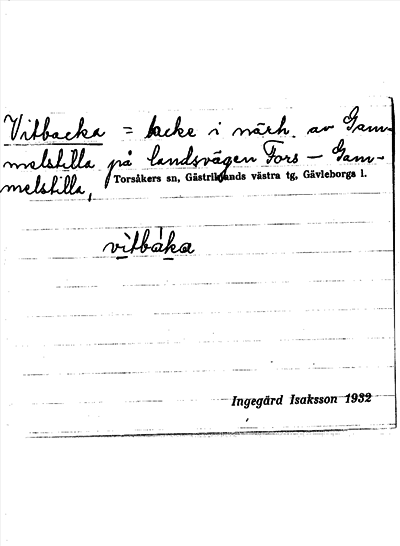 Vitbacka = backe i närh. av Gam-
melstilla på landsvägen Fors – Gam-
melstilla,
Torsåkers sn, Gästriklands västra tg, Gävleborgs l.
vìtbáka
Ingegärd Isaksson 1932